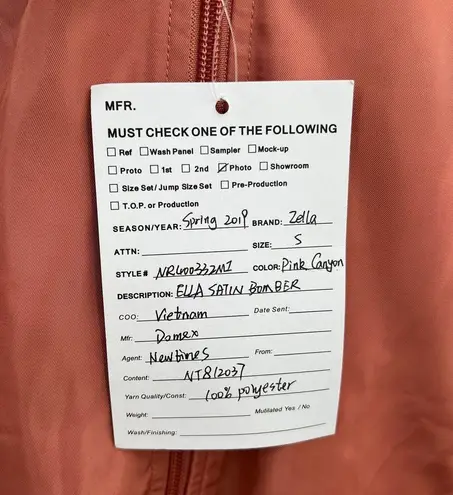 MFR.
MUST CHECK ONE OF THE FOLLOWING
☐ Ref ☐ Wash Panel ☐ Sampler ☐ Mock-up
☐ Proto ☐ 1st ☐ 2nd ☑ Photo ☐ Showroom
☐ Size Set / Jump Size Set ☐ Pre-Production
☐ T.O.P. or Production
SEASON/YEAR: Spring 2019 BRAND: Zella
ATTN: SIZE: S
STYLE # NR400332MI COLOR: Pink Canyon
DESCRIPTION: ELLA SATIN BOMBER
COO: Vietnam Date Sent:
Mfr: Domex
Agent: Newtimes From:
Content: NT812037
Yarn Quality/Const: 100% polyester
Weight: Mutilated Yes / No
Wash/Finishing: